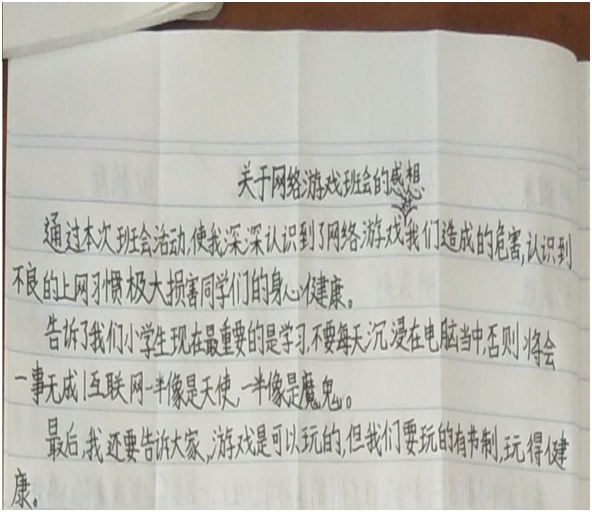 关于网络游戏班会的感想
通过本次班会活动,使我深深认识到了网络游戏给我们造成的危害,认识到
不良的上网习惯极大损害同学们的身心健康。
告诉了我们小学生现在最重要的是学习,不要每天沉浸在电脑当中,否则将会
一事无成!互联网一半像是天使,一半像是魔鬼。
最后,我还要告诉大家,游戏是可以玩的,但我们要玩的有节制,玩得健
康。